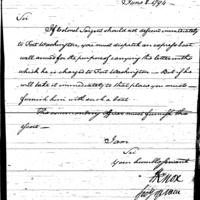 June 8. 1794
Sir
If Colonel Sargent should not descend immediately
to Fort Washington, you must dispatch an express boat
well armed for the purpose of carrying the letters with
which he is charged to Fort Washington — But if he
will take it immediately to that place you must
furnish him with such a boat.
The commanding officer must furnish the
I am
Sir
Your humble servant
H Knox
Secy of War